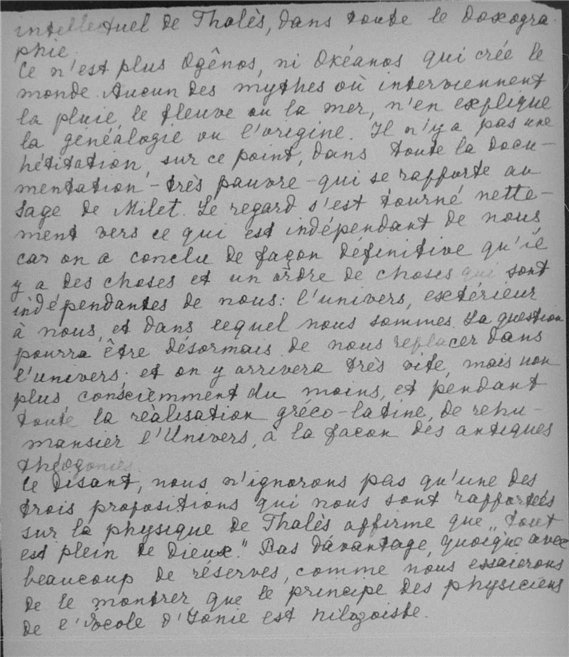 intellectuel de Thalès, dans toute le Doxogra-
phie.
Ce n'est plus Ogênos, ni Okéanos qui crée le
monde. Aucun des mythes où interviennent
la pluie, le fleuve ou la mer, n'en explique
la généalogie ou l'origine. Il n'y a pas une
hésitation, sur ce point, dans toute la docu-
mentation - très pauvre - qui se rapporte au
Sage de Milet. Le regard s'est tourné nette-
ment vers ce qui est indépendant de nous
car on a conclu de façon définitive qu'il
y a des choses et un ordre de choses qui sont
indépendantes de nous: l'univers, extérieur
à nous, et dans lequel nous sommes. La question
pourra être désormais de nous replacer dans
l'univers: et on y arrivera très vite, mais non
plus consciemment du moins, et pendant
toute la réalisation gréco-latine, de rehu-
mansier l'Univers, à la façon des antiques
théogonies.
Ce disant, nous n'ignorons pas qu'une des
trois propositions qui nous sont rapportées
sur la physique de Thalès affirme que „Tout
est plein de Dieux." Pas davantage, quoique avec
beaucoup de réserves, comme nous essaierons
de le montrer que le principe des physiciens
de l'école d'Ionie est hilozoiste.